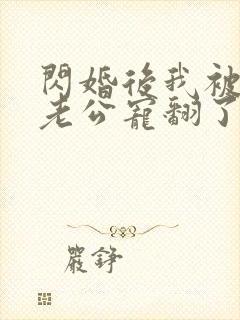 閃婚後我被
老公寵翻了
嚴錚